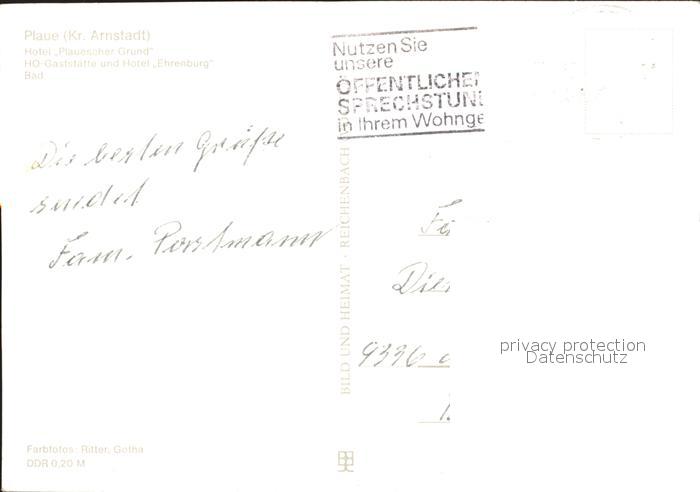 Plaue (Kr. Arnstadt)
Hotel „Plauescher Grund"
HO-Gaststätte und Hotel „Ehrenburg"
Bad
Nutzen Sie
unsere
ÖFFENTLICHEN
SPRECHSTUN
in Ihrem Wohnge
Die besten Grüße
sendet
Fam. Portmann
BILD UND HEIMAT · REICHENBACH
9336
privacy protection
Datenschutz
Farbfotos: Ritter, Gotha
DDR 0,20 M